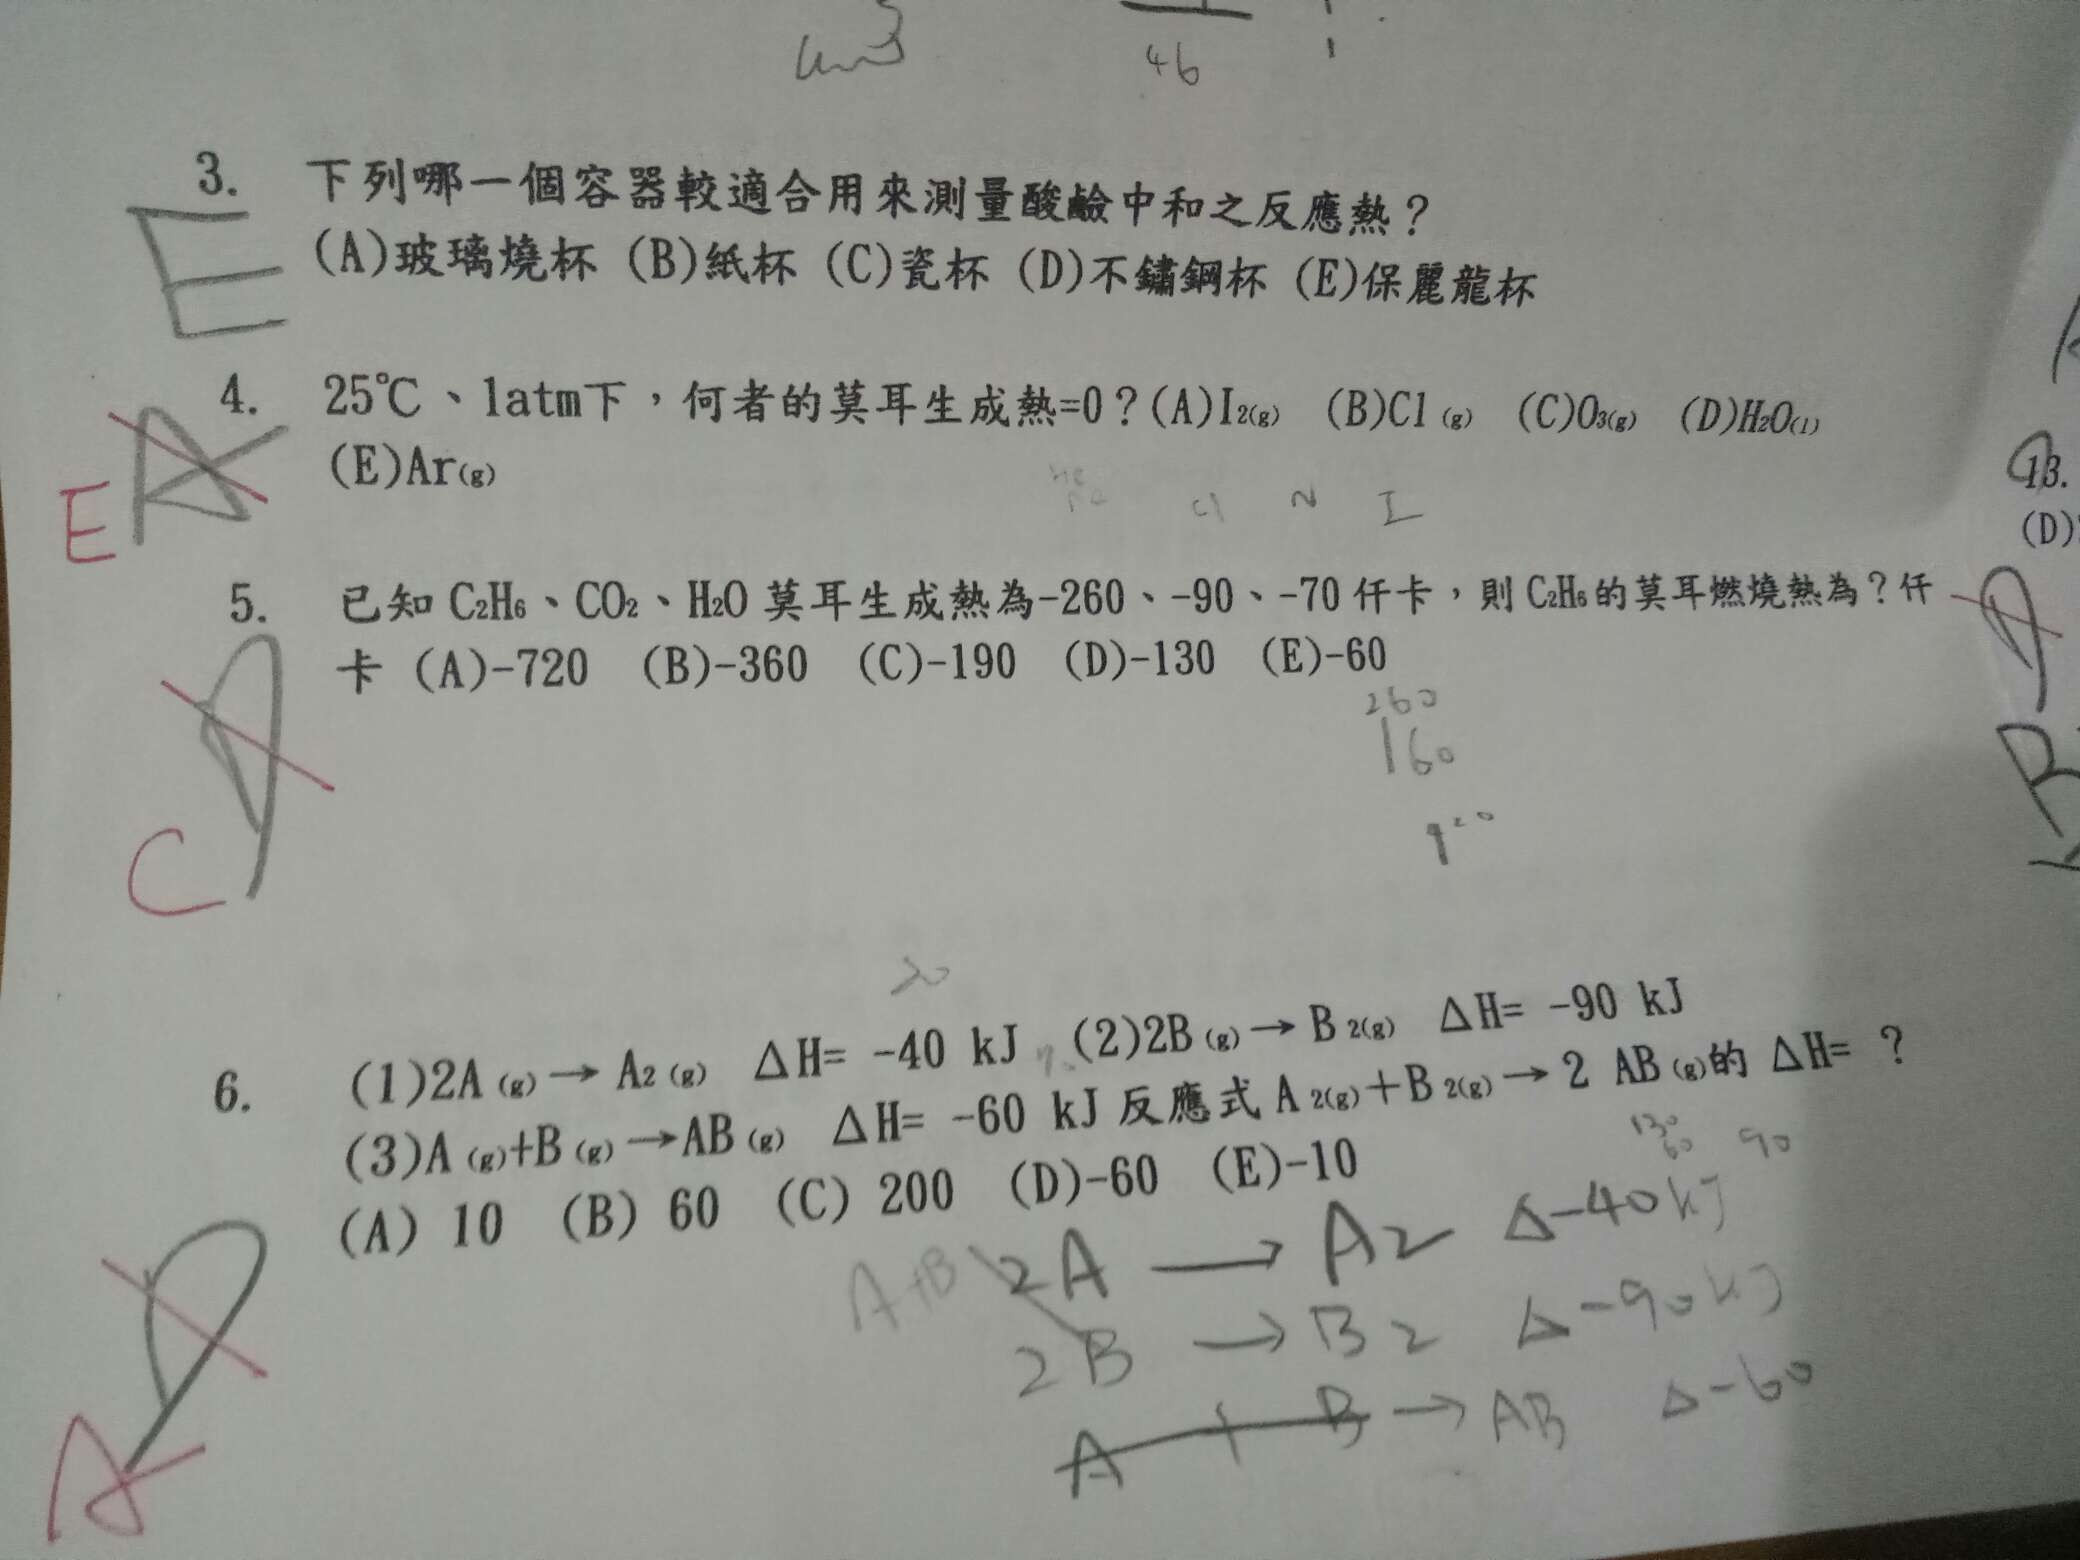 46
3. 下列哪一個容器較適合用來測量酸鹼中和之反應熱？
E
(A)玻璃燒杯 (B)紙杯 (C)瓷杯 (D)不鏽鋼杯 (E)保麗龍杯
4. 25℃、1atm下，何者的莫耳生成熱=0？(A)I2(g) (B)Cl (g) (C)O3(g) (D)H2O(l)
A
(E)Ar(g)
E
Cl N I
5. 已知 C2H6、CO2、H2O 莫耳生成熱為-260、-90、-70 仟卡，則 C2H6 的莫耳燃燒熱為？仟
卡 (A)-720 (B)-360 (C)-190 (D)-130 (E)-60
260
160
C
20
6. (1)2A (g)→ A2 (g) ΔH= -40 kJ (2)2B (g)→ B 2(g) ΔH= -90 kJ
(3)A (g)+B (g)→AB (g) ΔH= -60 kJ 反應式 A 2(g)+B 2(g)→ 2 AB (g)的 ΔH= ？
130
60 90
(A) 10 (B) 60 (C) 200 (D)-60 (E)-10
A+B 2A → A2 Δ-40kJ
2B → B2 Δ-90kJ
A + B → AB Δ-60
A
13.
(D)